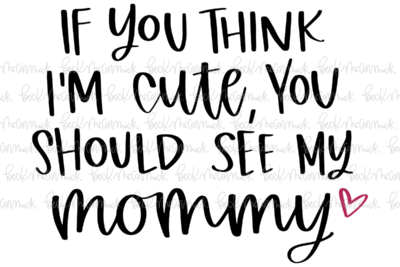 IF YOU THINK
I'M cute, YOU
SHOULD SEE MY
mommy